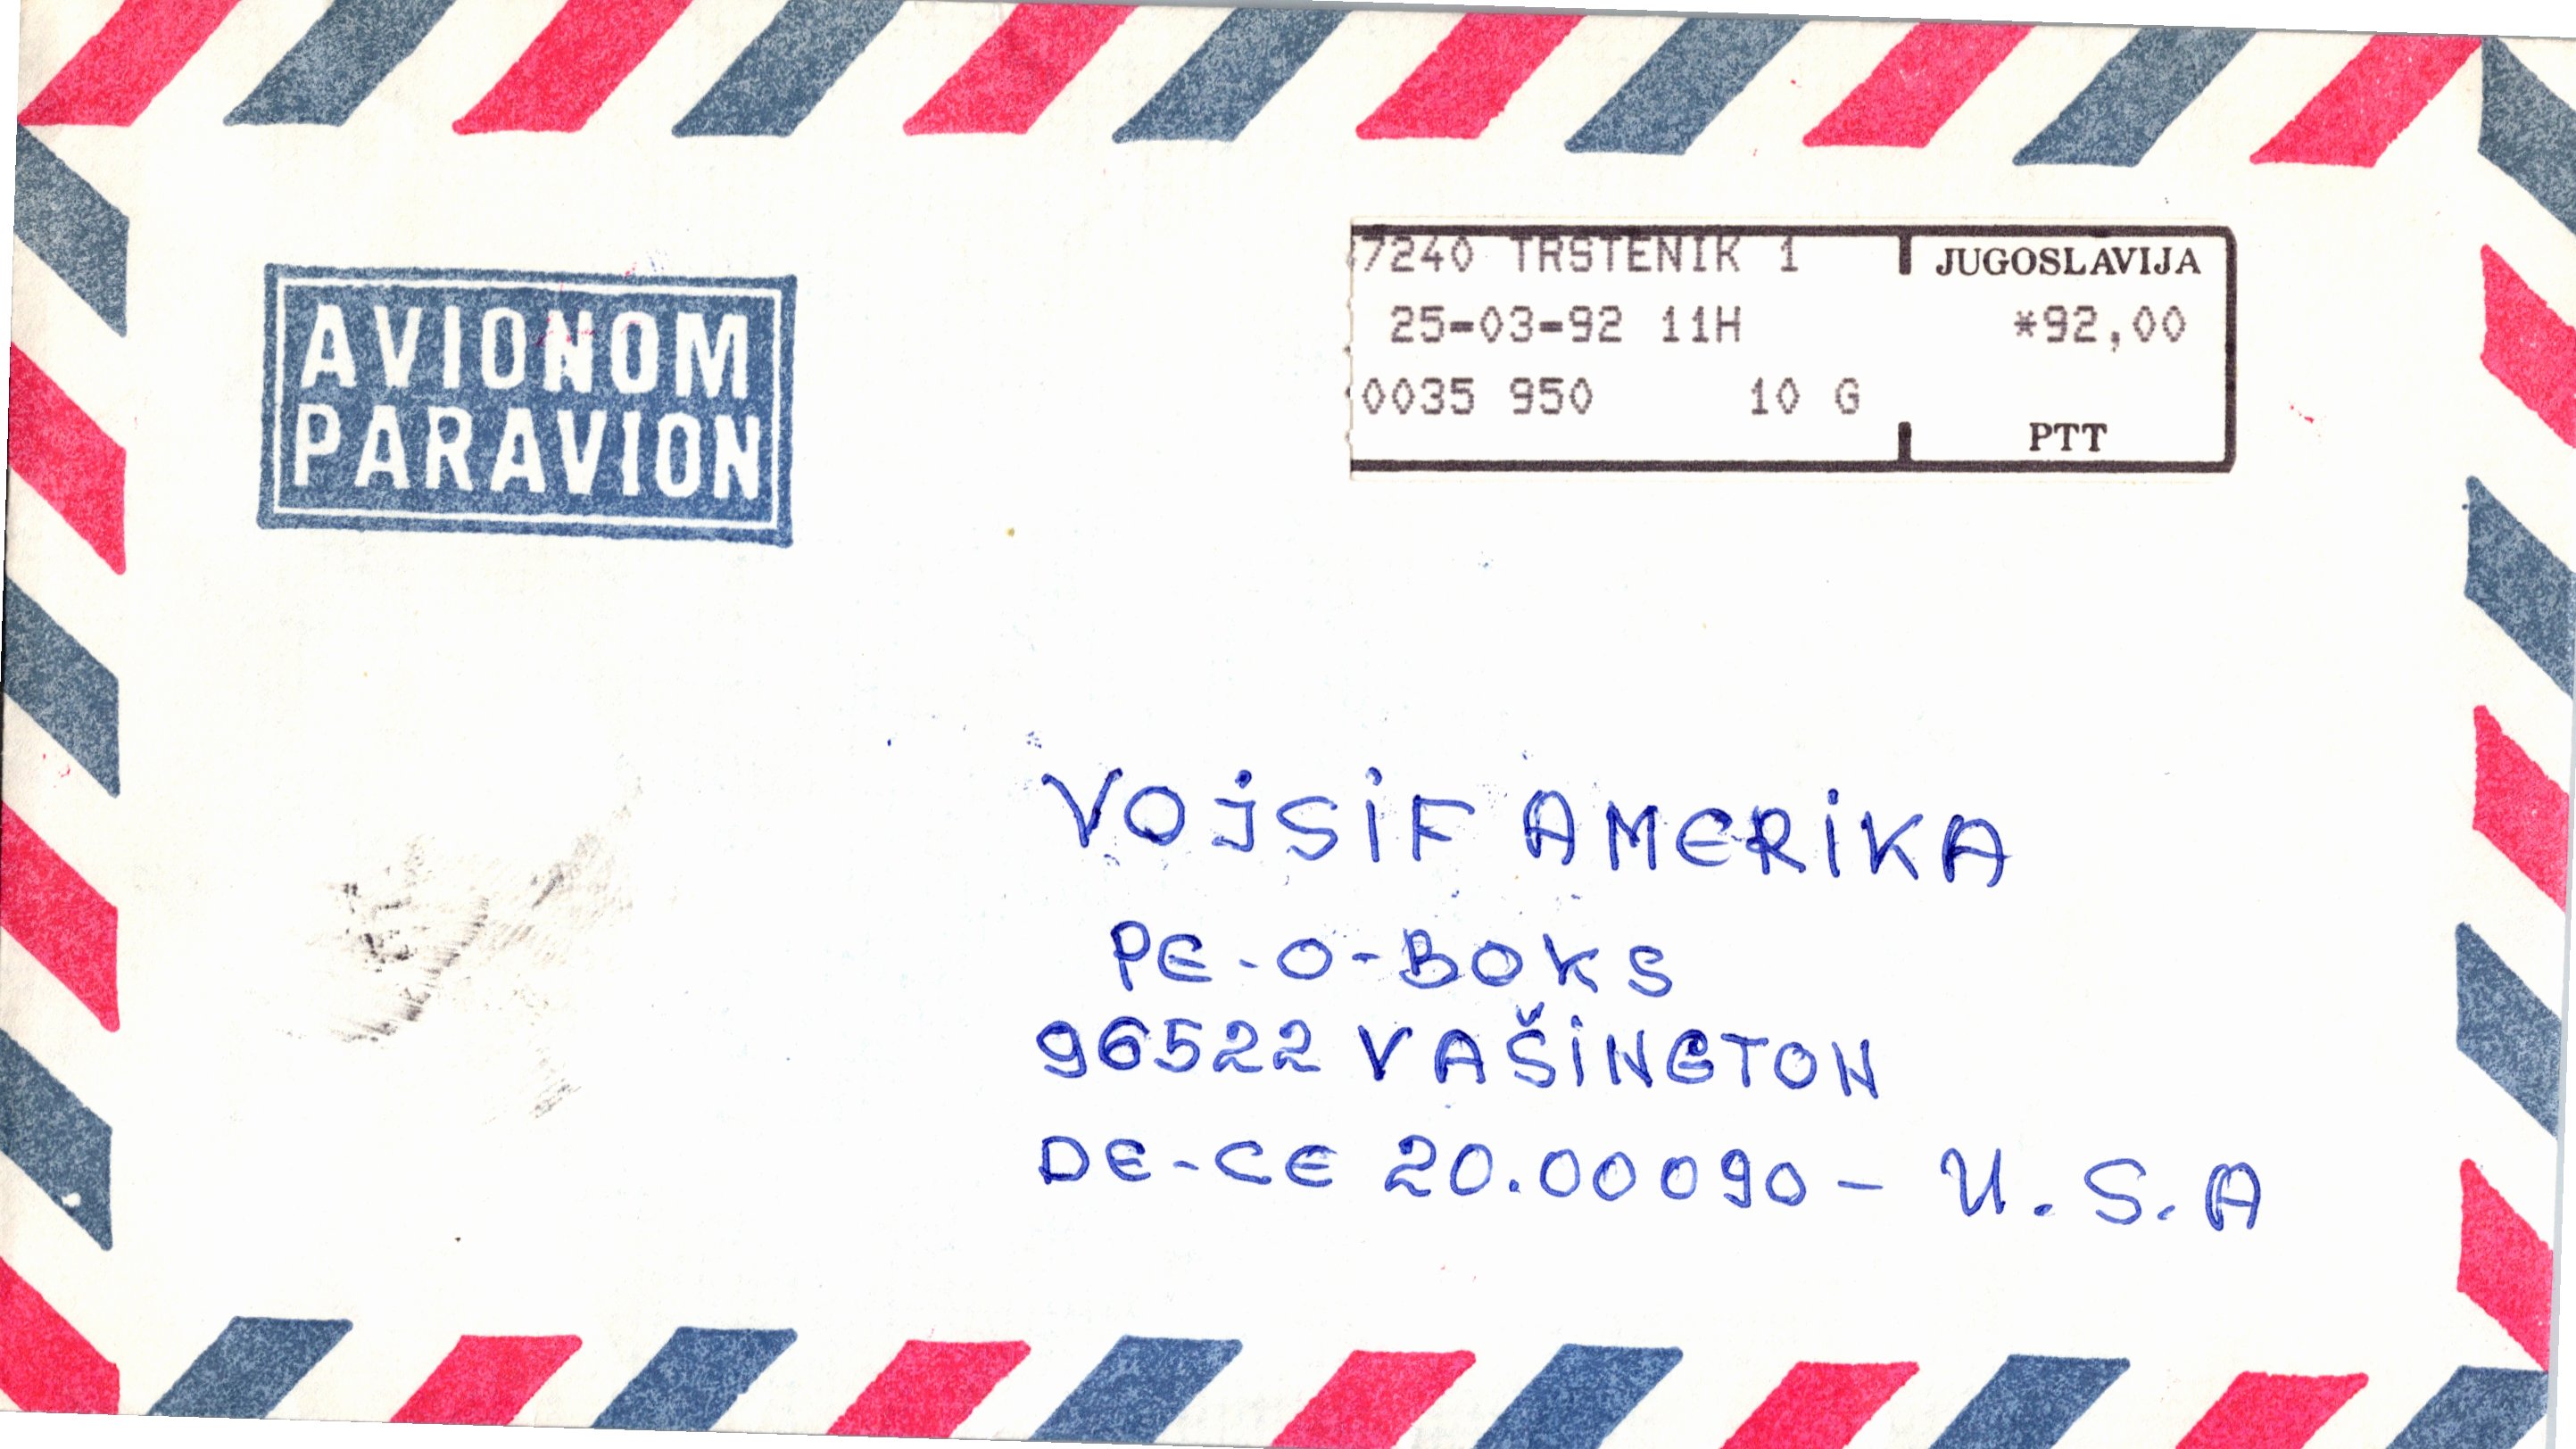 AVIONOM
PARAVION
7240 TRSTENIK 1
25-03-92 11H
0035 950 10 G
JUGOSLAVIJA
*92,00
PTT
VOJSIF AMERIKA
PE-O-BOKS
96522 VAŠINGTON
DE-CE 20.00090 - U.S.A